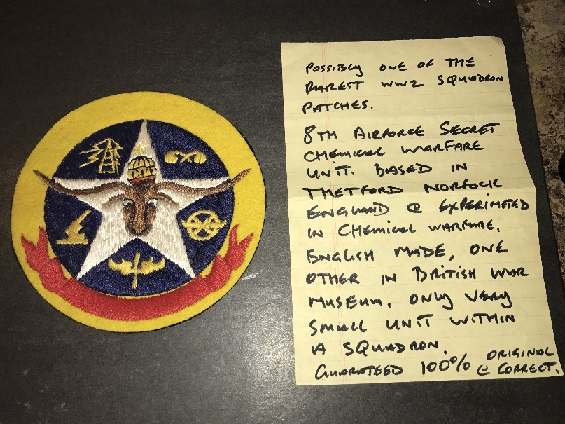 POSSIBLY ONE OF THE
RAREST WW2 SQUADRON
PATCHES.
8TH AIRFORCE SECRET
CHEMICAL WARFARE
UNIT. BASED IN
THETFORD NORFOLK
ENGLAND & EXPERIMETED
IN CHEMICAL WARFARE.
ENGLISH MADE, ONE
OTHER IN BRITISH WAR
MUSEUM, ONLY VERY
SMALL UNIT WITHIN
A SQUADRON.
GUARATEED 100% ORIGINAL
& CORRECT.